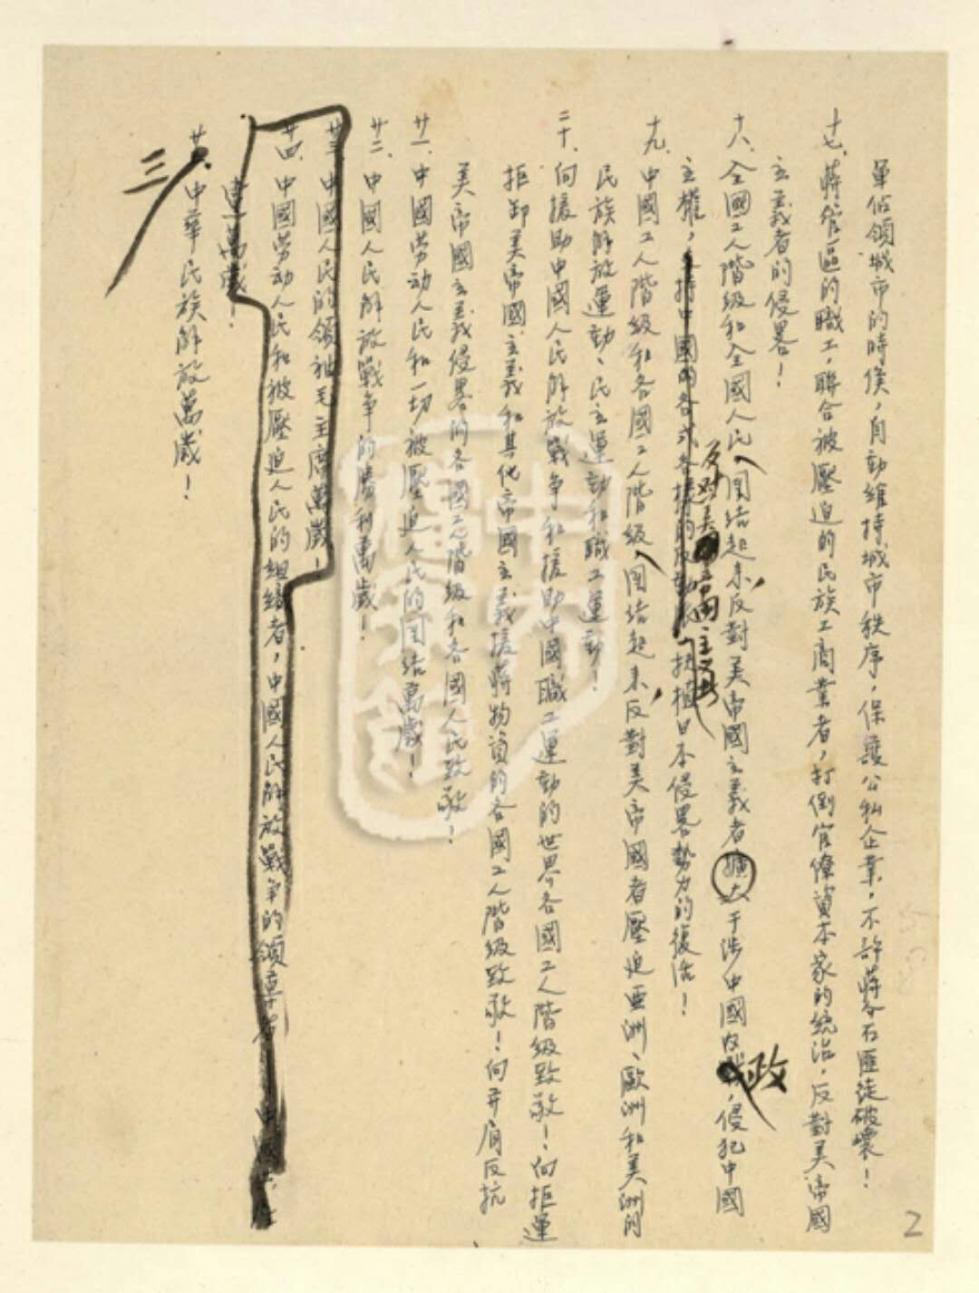 軍佔領城市的時候，自動維持城市秩序，保護公私企業，不許蔣介石匪徒破壞！
十七、蔣管區的職工，聯合被壓迫的民族工商業者，打倒官僚資本家的統治，反對美帝國
主義者的侵畧！
十八、全國工人階級和全國人民，團結起來，反對美帝國主義者擴大干涉中國內政，侵犯中國
主權，支持中國的各式各樣的反動派，扶植日本侵畧勢力的復活！
反對美帝國主義
十九、中國工人階級和各國工人階級，團結起來，反對美帝國者壓迫亞洲、歐洲和美洲的
民族解放運動、民主運動和職工運動！
二十、向援助中國人民解放戰爭和援助中國職工運動的世界各國工人階級致敬！向拒運
拒卸美帝國主義和其他帝國主義援蔣物資的各國工人階級致敬！向并肩反抗
美帝國主義侵畧的各國工人階級和各國人民致敬！
廿一、中國勞動人民和一切被壓迫人民的團結萬歲！
廿二、中國人民解放戰爭的勝利萬歲！
廿三、中國人民的領袖毛主席萬歲！
廿四、中國勞动人民和被壓迫人民的組織者，中國人民解放戰爭的領導者 中國共產
黨萬歲！
三
廿、中華民族解放萬歲！
2